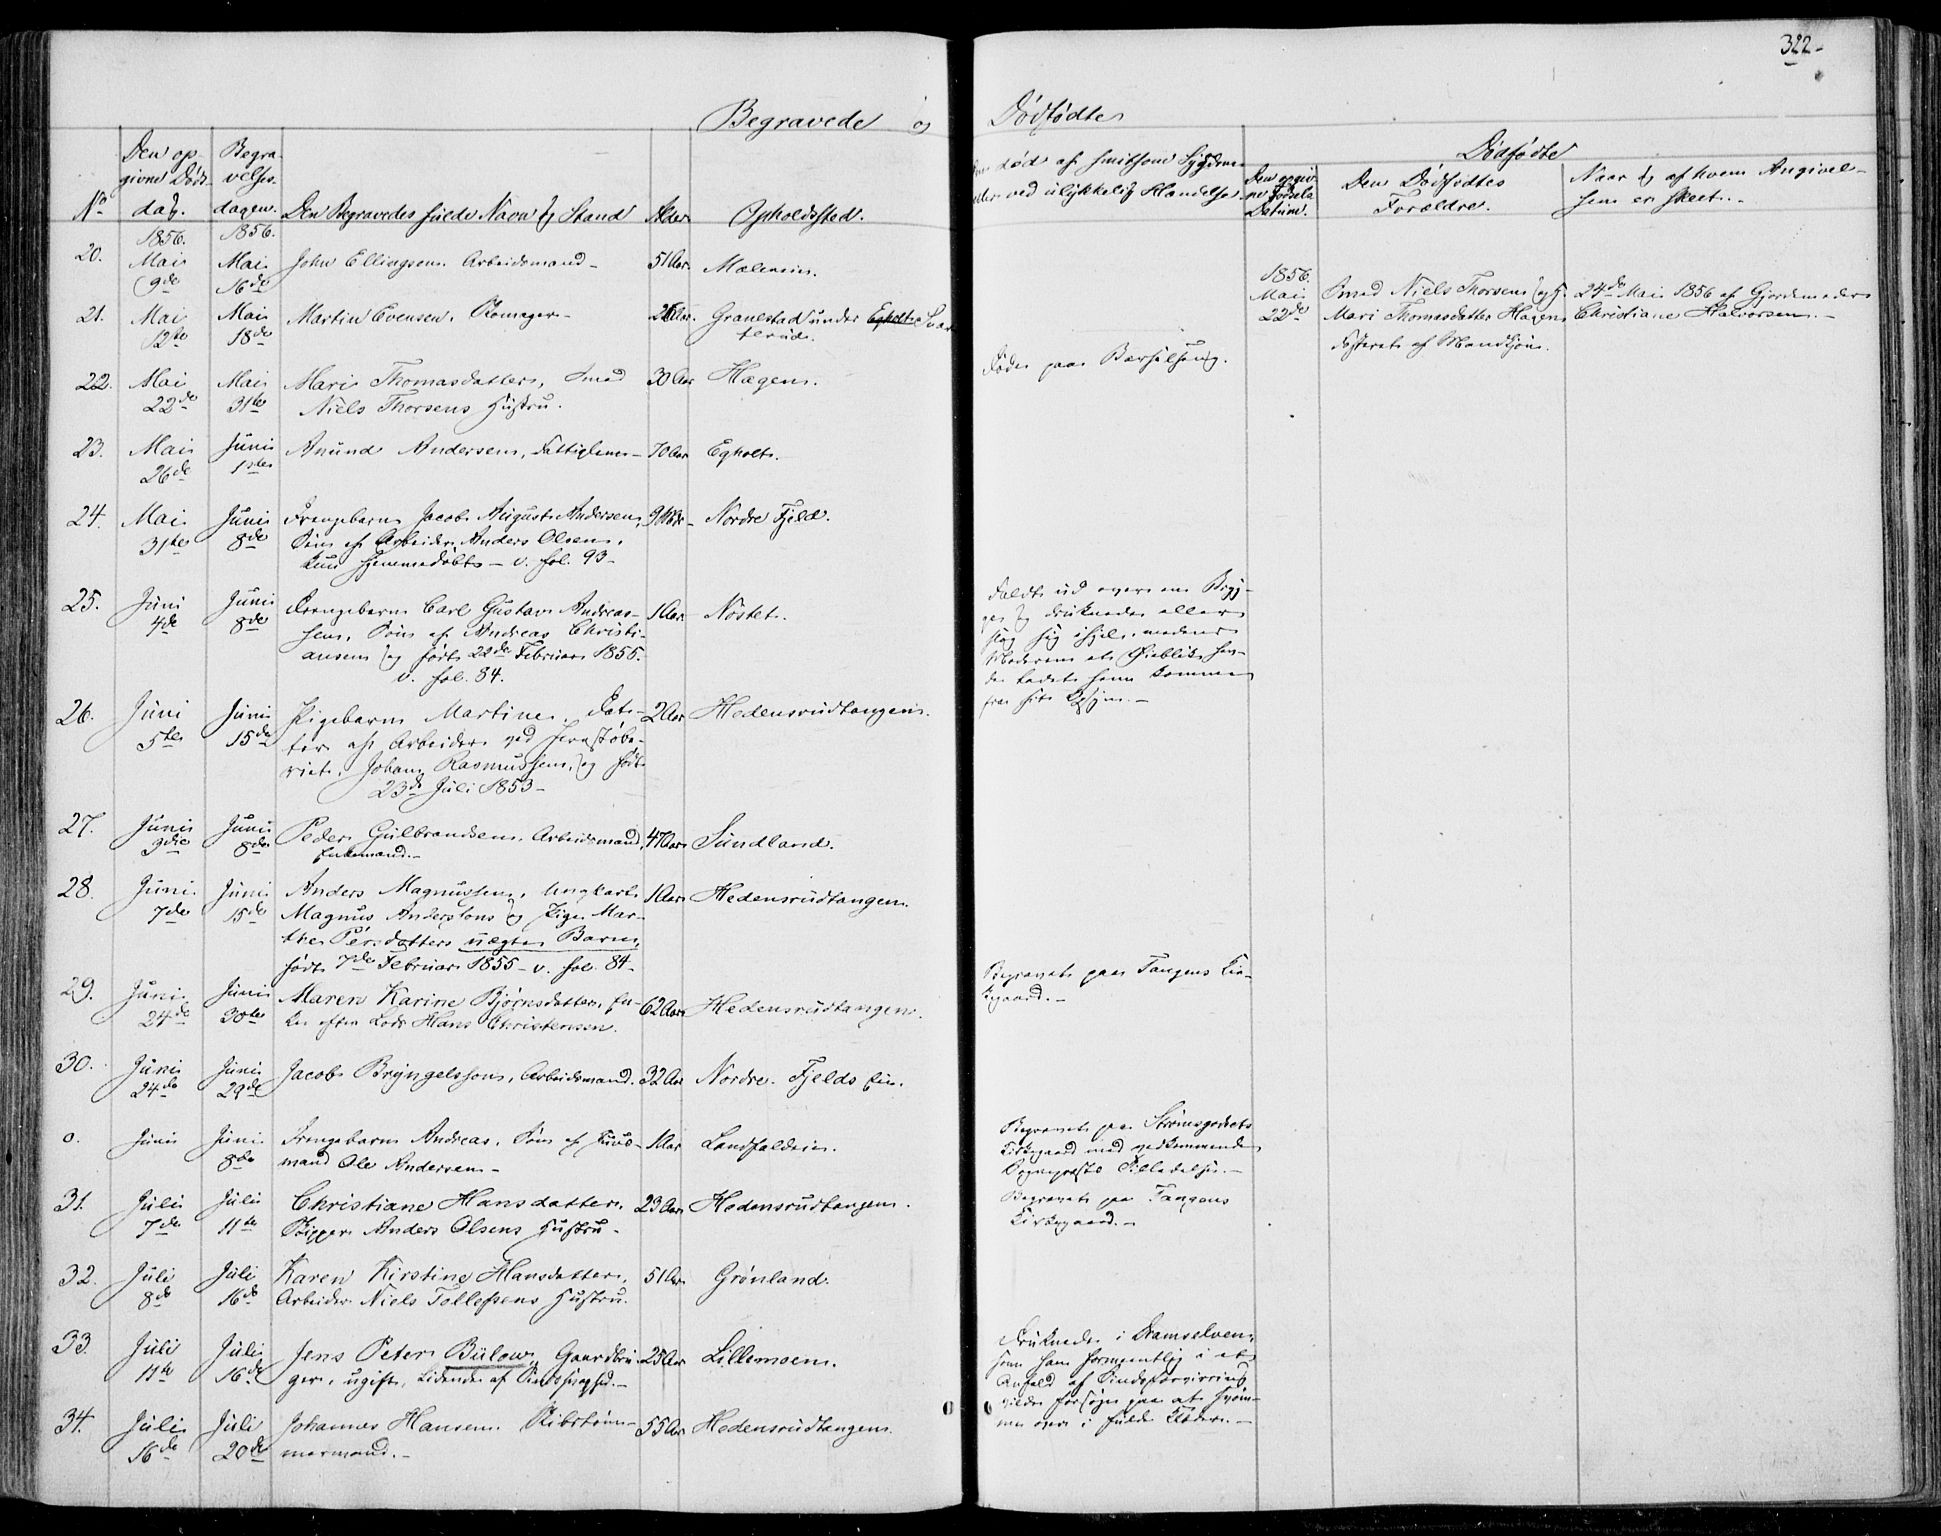 322-
Begravede og Dødfødte
No
Den op-
givne Døds-
dag.
Begra-
velses-
dagen.
Den Begravedes fulde Navn og Stand
Alder
Opholdssted.
død af smitsom Sygdom
eller ved ulykkelig Hændelse
Dødfødte
Datum.
Den Dødfødtes
Forældre.
Naar og af hvem Angivel-
sen er skeet.
1856. 1856.
20. Mai 9de Mai 16de John Ellingsen. Arbeidsmand- 51 Aar.
21. Mai 12te Mai 18de Martin Evensen, 26 Aar. Granestad under Egholt Svar-
terud.
22. Mai 22de Mai 31te Mari Thomasdatter, Smed 30 Aar Hagen.
Niels Thorsens Hustru.
Døde paa Barselseng.
1856.
Mai
22de
Smed Niels Thorsen og H.
Mari Thomasdatter Hagen
Fosteret af Mandkjøn.
24de Mai 1856 af Gjordemoder
Christiane Halvorsen.-
23. Mai 26de Juni 1ste Amund Andersen, Fattiglem- 70 Aar Egholt.
24. Mai 31te Juni 8de Drengebarn Jacob August Andersen, 9 Mdr- Nordre Fjeld.
Søn af Arbeider Anders Olsen,
kun hjemmedøbt- v. fol. 93-
25. Juni 4de Juni 8de Drengebarn Carl Gustav Andreas- 1 Aar. Nøstet.
sen, Søn af Andreas Christi-
ansen og født 22de Februar 1855.
v. fol. 84.
Faldt ud over en Bryg-
ge og druknede eller
slog sig ihjel, medens
Moderen et Øieblik hav-
de ladet ham komme
fra sit Opsyn.-
26. Juni 5te Juni 15de Pigebarn Martine, Dat- 2 Aar Hedensrudtangen.
ter af Arbeider ved Jernstøbe-
riet, Johan Rasmussen, og født
23de Juli 1853-
27. Juni 3die Juni 8de Peder Gulbrandsen, Arbeidsmand, 47 Aar Sundland.
Enkemand.-
28. Juni 7de Juni 15de Anders Magnussen, Ungkarl 1 Aar Hedensrudtangen.
Magnus Anderssons og Pige Mar-
the Persdatters uægte Barn,
født 7de Februar 1855- v. fol. 84-
29. Juni 24de Juni 30te Maren Karine Bjørnsdatter, En- 62 Aar Hedensrudtangen.
ke efter Lods Hans Christensen.
Begravet paa Tangens Kir-
kegaard.-
30. Juni 24de Juni 29de Jacob Bryngelsson, Arbeidsmand. 32 Aar Nordre Fjelds Eie.
0. Juni Juni 8de Drengebarn Andreas, Søn af 1 Aar Landfaldeien.
mand Ole Andersen-
Begravet paa Strømsgodsets
Kirkegaard med vedkommende
Sognepræsts Tilladelse.-
31. Juli 7de Juli 11te Christiane Hansdatter, 23 Aar Hedensrudtangen.
Skipper Anders Olsens Hustru-
Begravet paa Tangens
Kirkegaard.-
32. Juli 8de Juli 16de Karen Kirstine Hansdatter, 51 Aar Grønland.
Arbeider Niels Tollefsens Hustru.
33. Juli 11te Juli 16de Jens Peter Bülow, Gaardbru- 25 Aar Lillemoen.
ger, ugift, Lidende af Sindssvaghed.-
Druknede i Dramselven,
som han formeentlig i et
Anfald af Sindsforvirring
vilde forsøge paa at svøm-
me over i fulde Klæder.-
34. Juli 16de Juli 20de Johannes Hansen, Skibstøm- 55 Aar Hedensrudtangen.
mermand.-